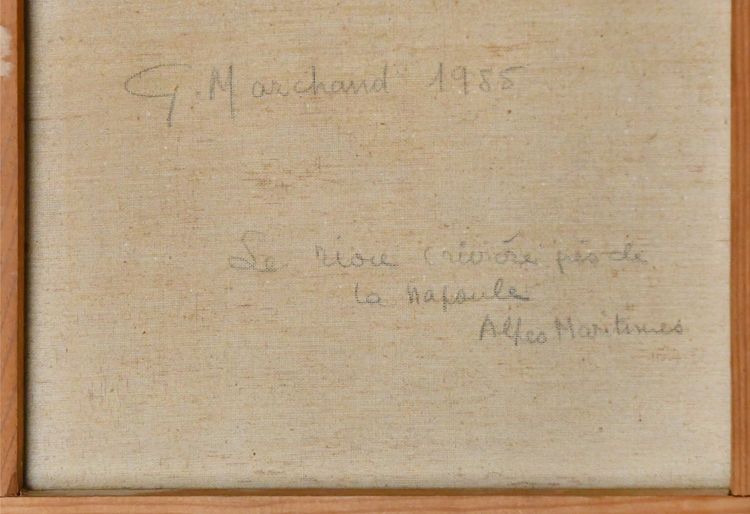 G. Marchand 1985
Le riou (rivière près de
la Napoule
Alpes Maritimes